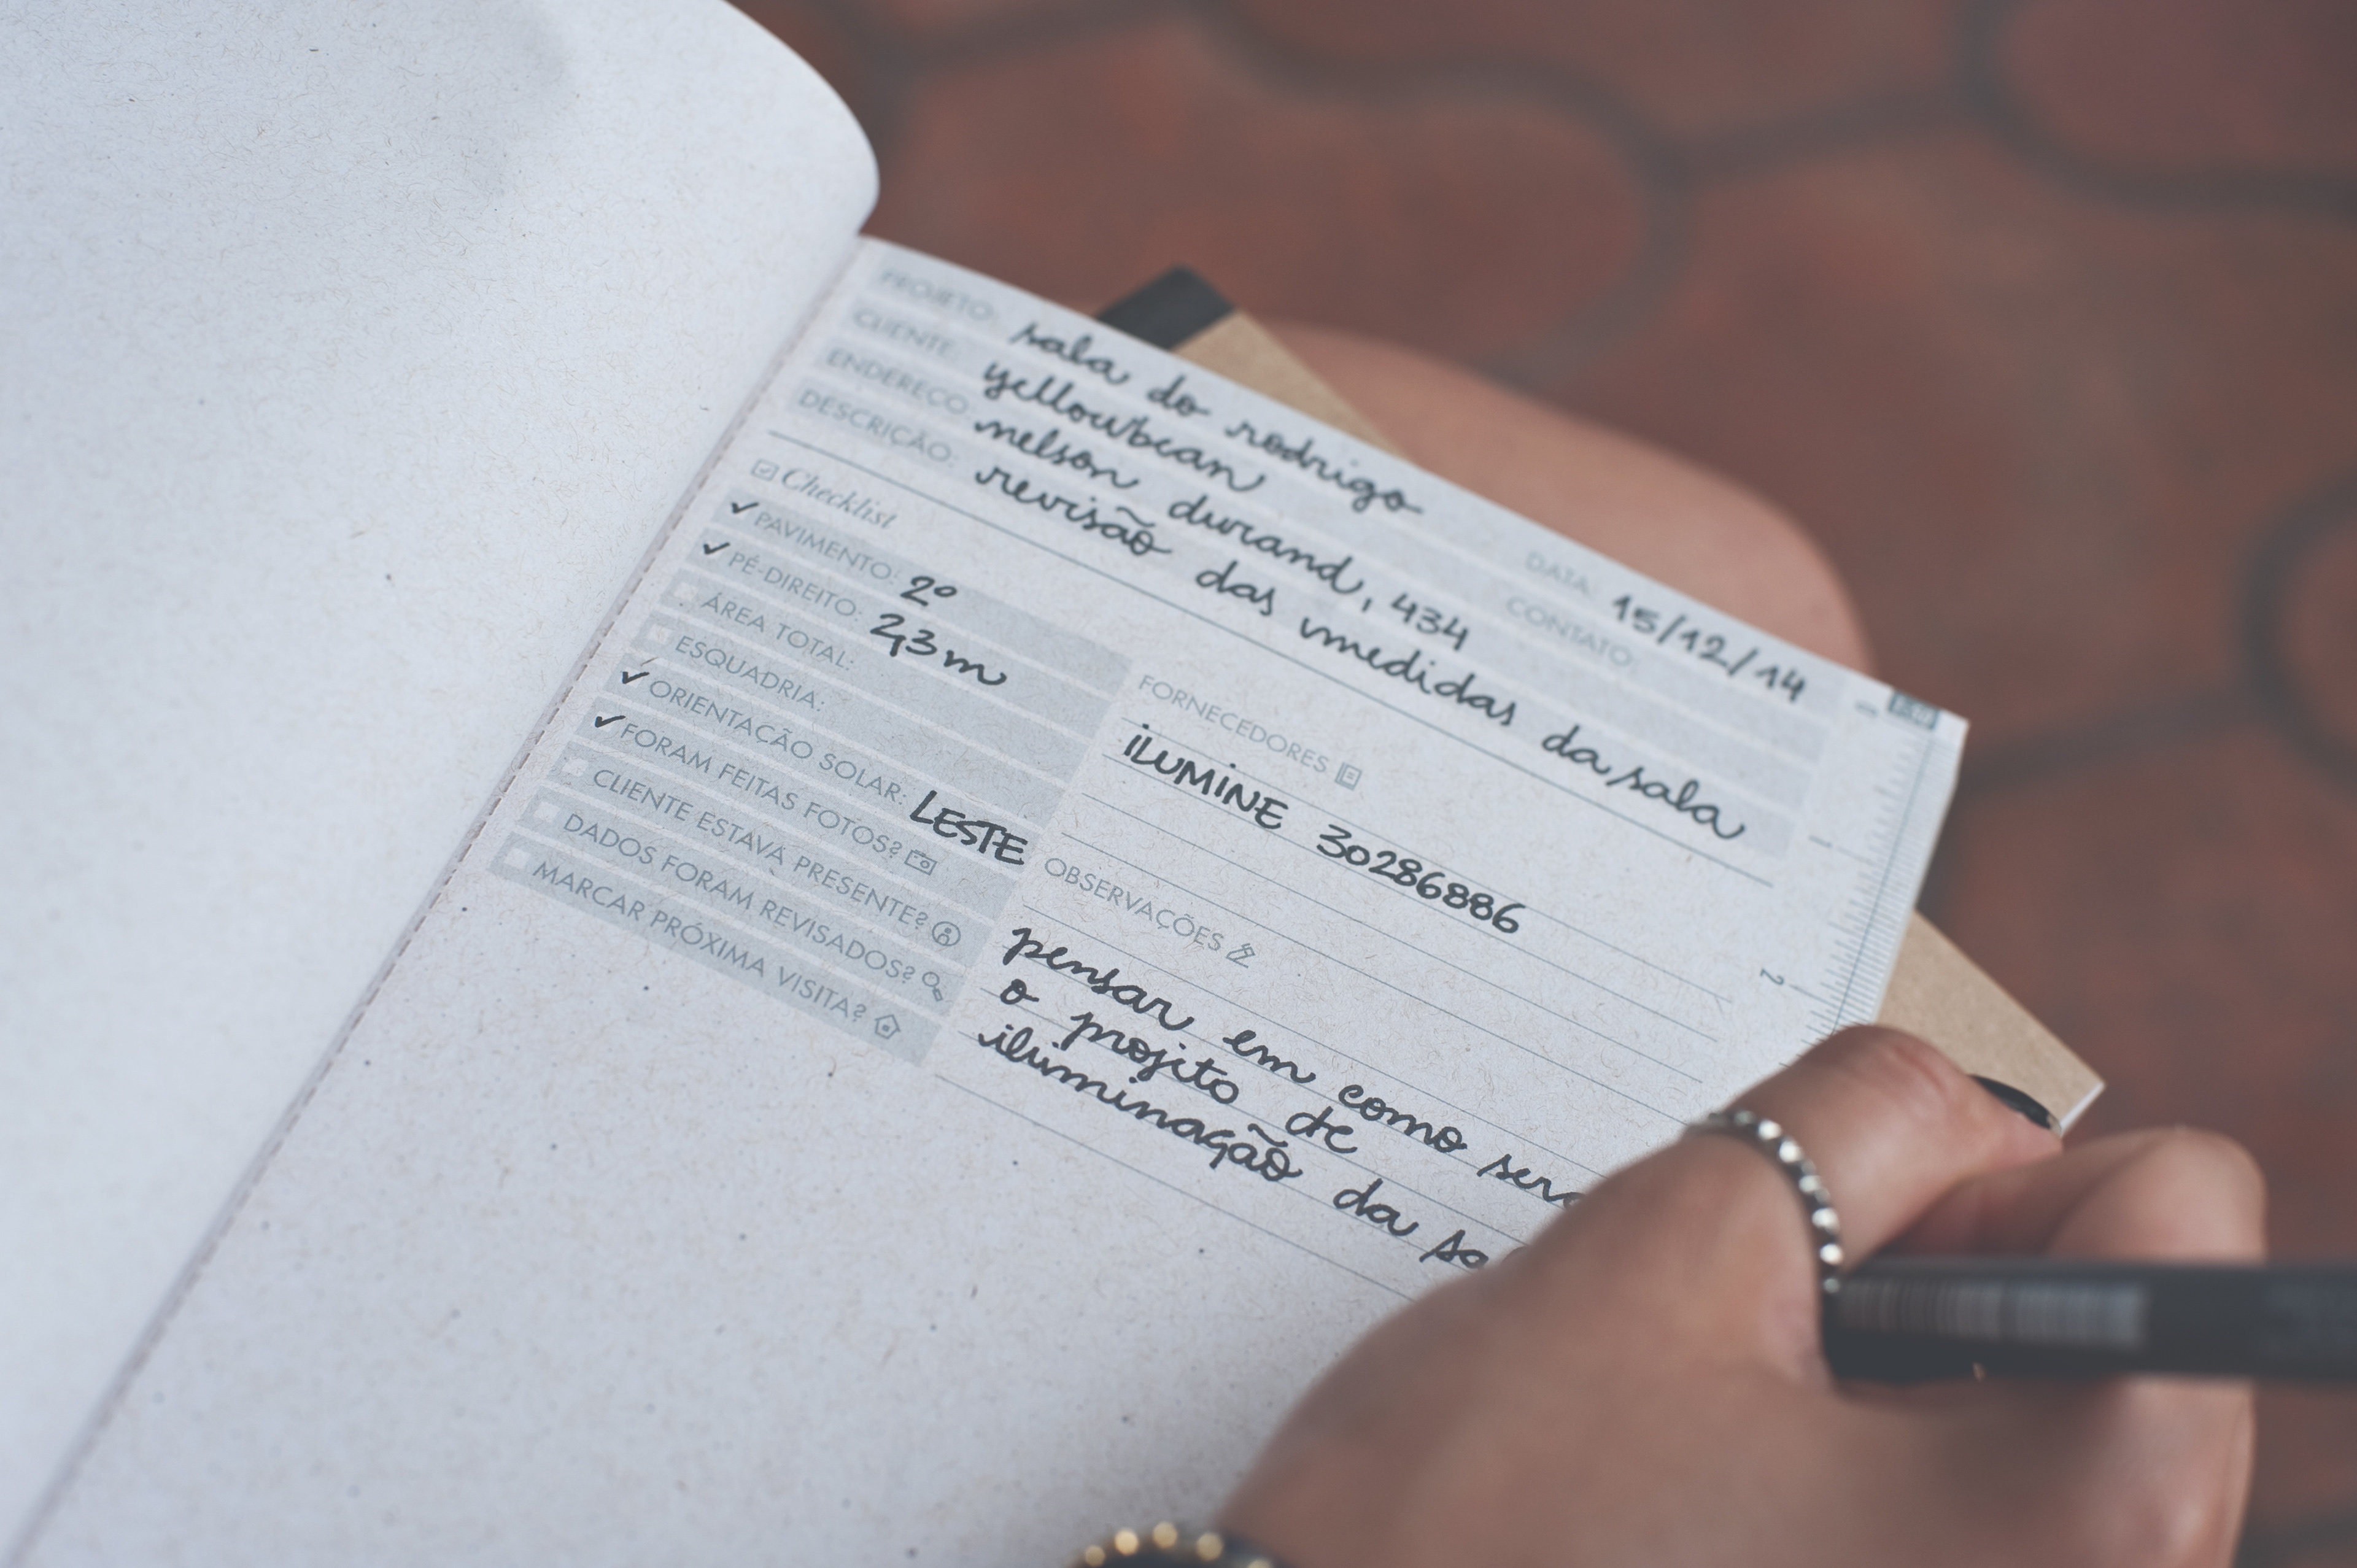 PROJETO: sala do rodrigo
CLIENTE: yellowbean
DATA: 15/12/14
ENDEREÇO: nelson durand, 434
CONTATO:
DESCRIÇÃO: revisão das medidas da sala
Checklist
✓ PAVIMENTO: 2º
✓ PÉ-DIREITO: 2,3m
ÁREA TOTAL:
ESQUADRIA:
✓ ORIENTAÇÃO SOLAR: LESTE
✓ FORAM FEITAS FOTOS?
CLIENTE ESTAVA PRESENTE?
DADOS FORAM REVISADOS?
MARCAR PRÓXIMA VISITA?
FORNECEDORES
iLUMiNE 30286886
OBSERVAÇÕES
pensar em como será
o projeto de
iluminação da sa
1
2